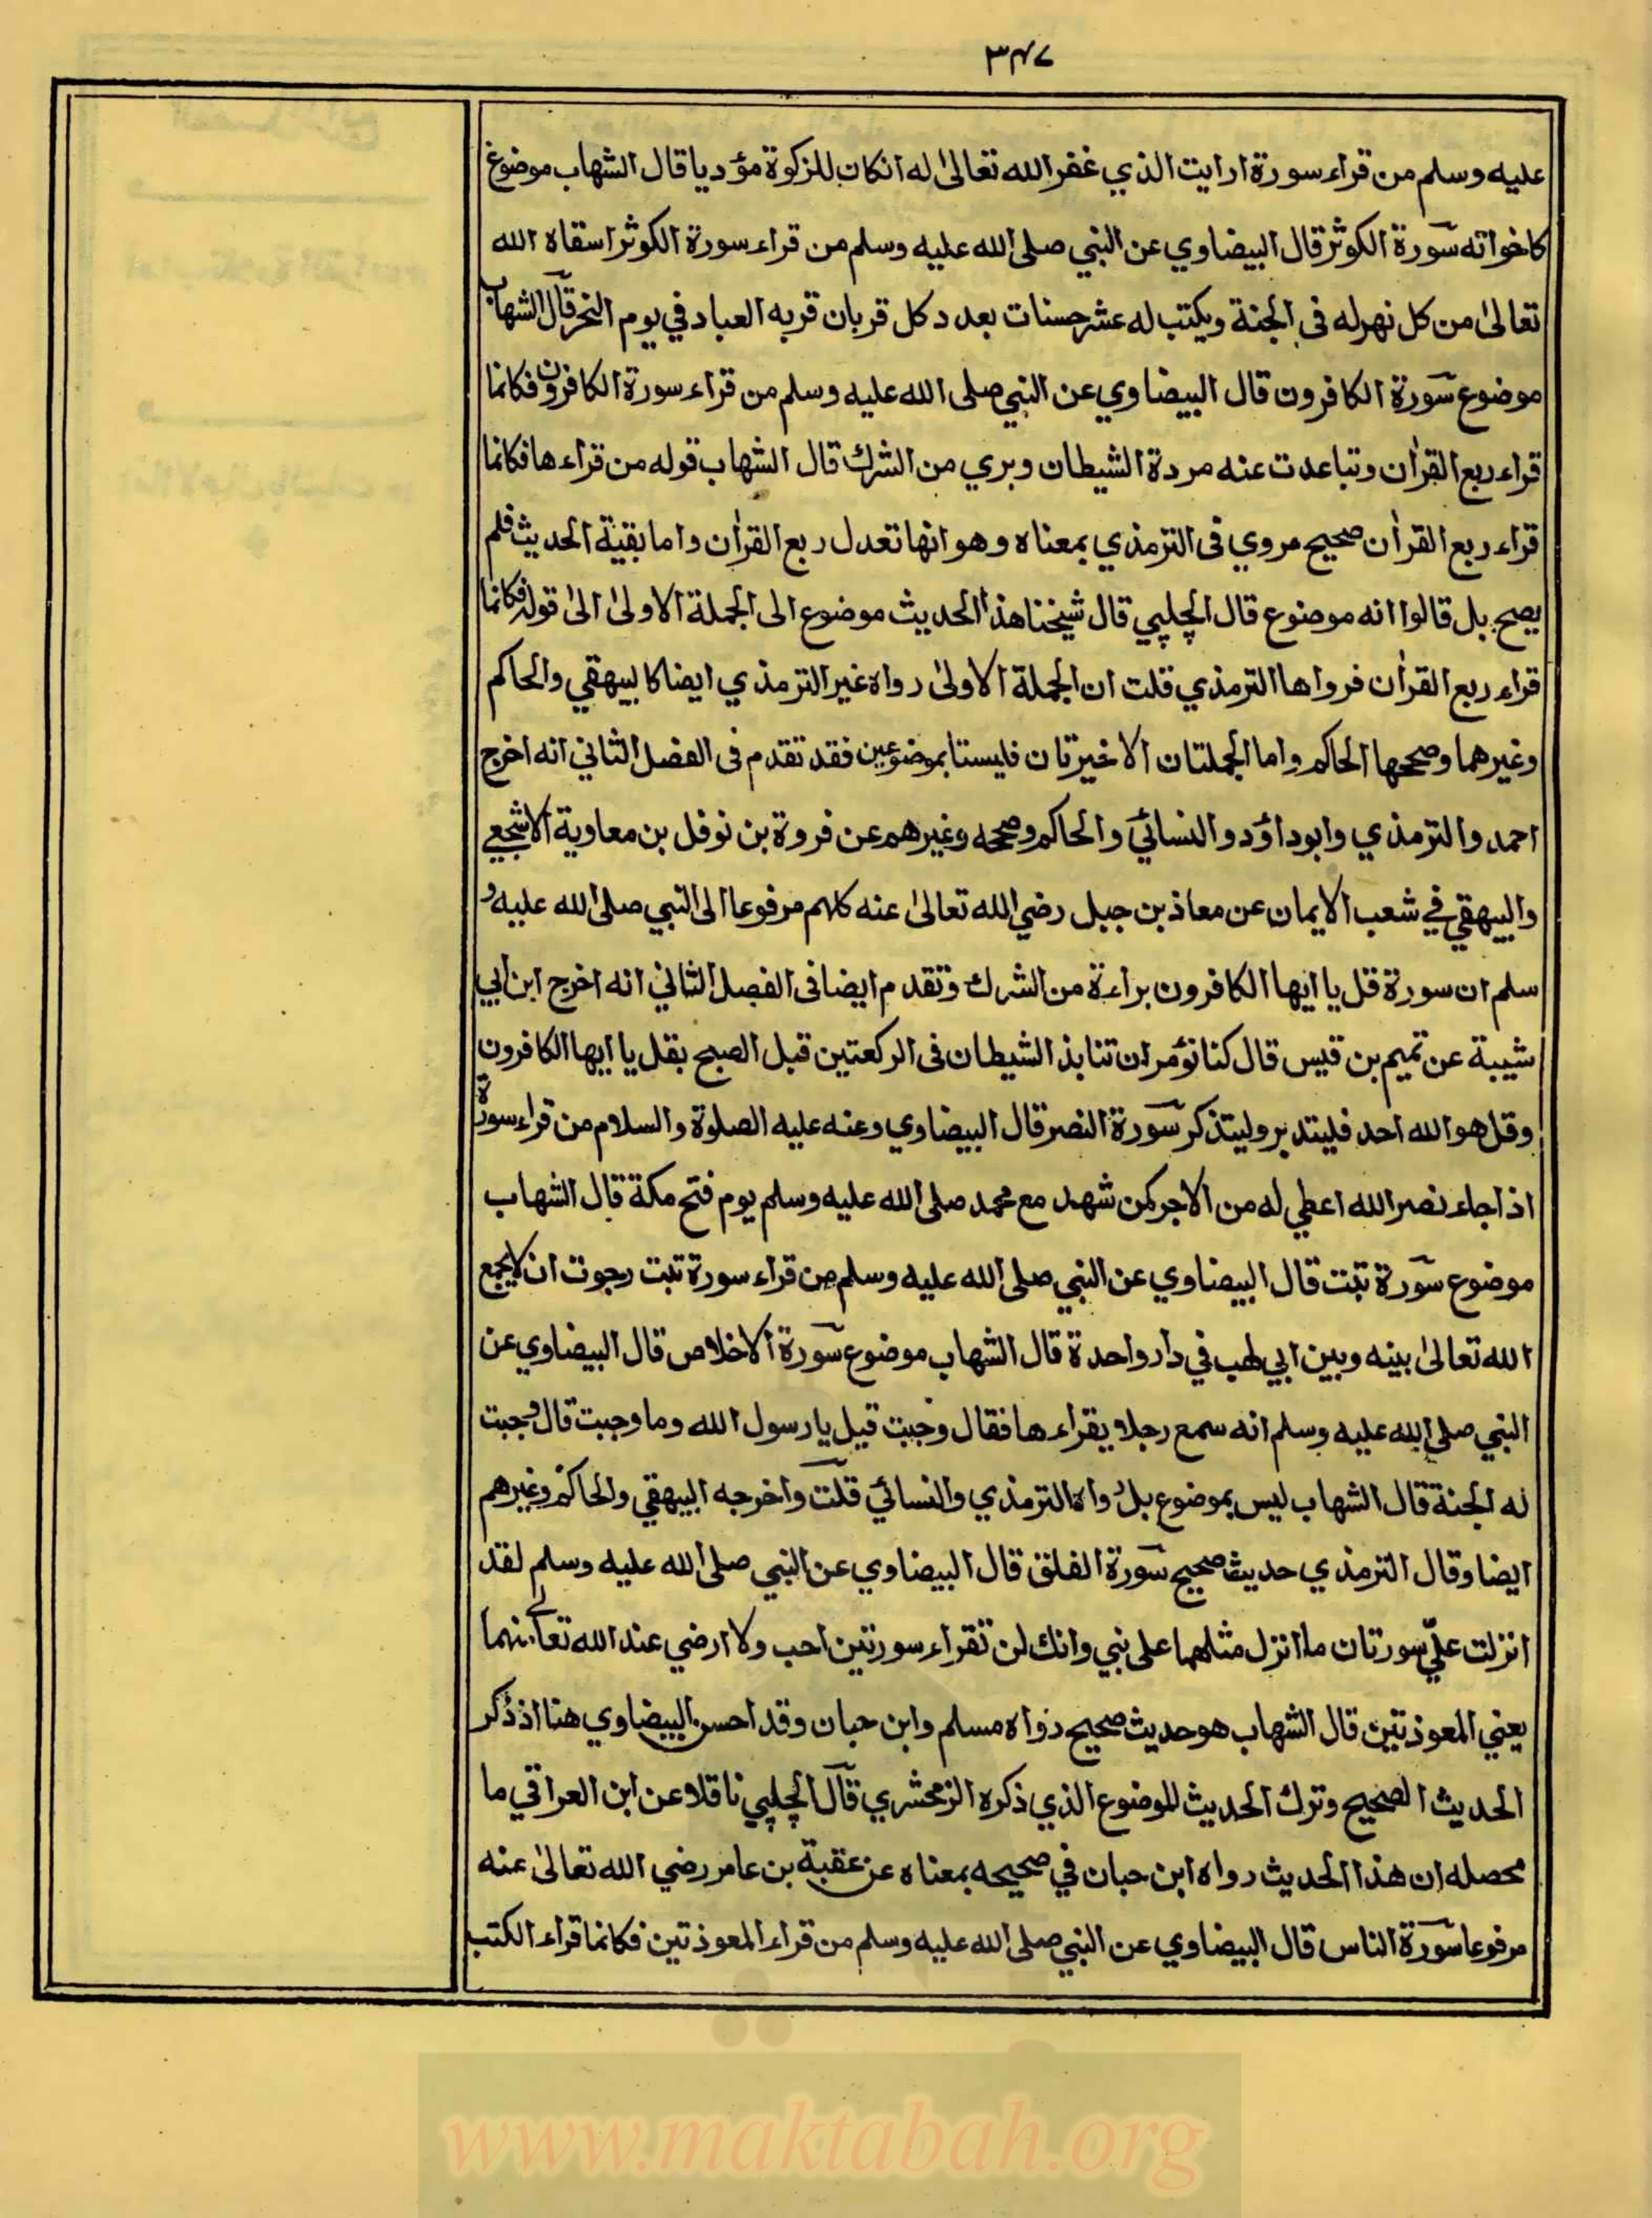 ٣٤٧
عليه وسلم من قراء سورة ارايت الذي غفر الله تعالىٰ له انكان للزكوة مؤديا قال الشهاب موضوع
كاخواته سورة الكوثر قال البيضاوي عن النبي صلى الله عليه وسلم من قراء سورة الكوثر اسقاه الله
تعالىٰ من كل نهر له فى الجنة ويكتب له عشر حسنات بعدد كل قربان قربه العباد في يوم النحر قال الشهاب
موضوع سورة الكافرون قال البيضاوي عن النبي صلى الله عليه وسلم من قراء سورة الكافرون فكانما
قراء ربع القراٰن وتباعدت عنه مردة الشيطان وبري من الشرك قال الشهاب قوله من قراءها فكانما
قراء ربع القراٰن صحيح مروي فى الترمذي بمعناه وهو انها تعدل ربع القراٰن واما بقية الحديث فلم
يصح بل قالوا انه موضوع قال الچلپي قال شيخنا هذا الحديث موضوع الى الجملة الاولىٰ الىٰ قوله فكانما
قراء ربع القراٰن فرواها الترمذي قلت ان الجملة الاولىٰ رواه غير الترمذي ايضا كالبيهقي والحاكم
وغيرهما وصححها الحاكم واما الجملتان الاخيرتان فليستا بموضوعين فقد تقدم فى الفصل الثاني انه اخرج
احمد والترمذي وابوداؤد والنسائي والحاكم وصححه وغيرهم عن فروة بن نوفل بن معاوية الاشجعي
والبيهقي في شعب الايمان عن معاذ بن جبل رضي الله تعالىٰ عنه كلهم مرفوعا الى النبي صلى الله عليه و
سلم ان سورة قل يا ايها الكافرون براءة من الشرك وتقدم ايضا فى الفصل الثاني انه اخرج ابن ابي
شيبة عن تميم بن قيس قال كنا نؤمر ان تنابذ الشيطان فى الركعتين قبل الصبح بقل يا ايها الكافرون
وقل هو الله احد فليتدبر وليتذكر سورة النصر قال البيضاوي وعنه عليه الصلوة والسلام من قراء سورة
اذا جاء نصر الله اعطي له من الاجر كمن شهد مع محمد صلى الله عليه وسلم يوم فتح مكة قال الشهاب
موضوع سورة تبت قال البيضاوي عن النبي صلى الله عليه وسلم من قراء سورة تبت رجوت ان لا يجمع
الله تعالىٰ بينه وبين ابي لهب في دار واحدة قال الشهاب موضوع سورة الاخلاص قال البيضاوي عن
النبي صلى الله عليه وسلم انه سمع رجلا يقراءها فقال وجبت قيل يا رسول الله وما وجبت قال وجبت
له الجنة قال الشهاب ليس بموضوع بل رواه الترمذي والنسائي قلت واخرجه البيهقي والحاكم وغيرهم
ايضا وقال الترمذي حديث صحيح سورة الفلق قال البيضاوي عن النبي صلى الله عليه وسلم لقد
انزلت عليّ سورتان ما انزل مثلهما على نبي وانك لن تقراء سورتين احب ولا ارضي عند الله تعالے منهما
يعني المعوذتين قال الشهاب هو حديث صحيح رواه مسلم وابن حبان وقد احسن البيضاوي هنا اذ ذكر
الحديث الصحيح وترك الحديث الموضوع الذي ذكره الزمخشري قال الچلپي ناقلا عن ابن العراقي ما
محصله ان هذا الحديث رواه ابن حبان في صحيحه بمعناه عن عقبة بن عامر رضي الله تعالىٰ عنه
مرفوعا سورة الناس قال البيضاوي عن النبي صلى الله عليه وسلم من قراء المعوذتين فكانما قراء الكتب
www.maktabah.org